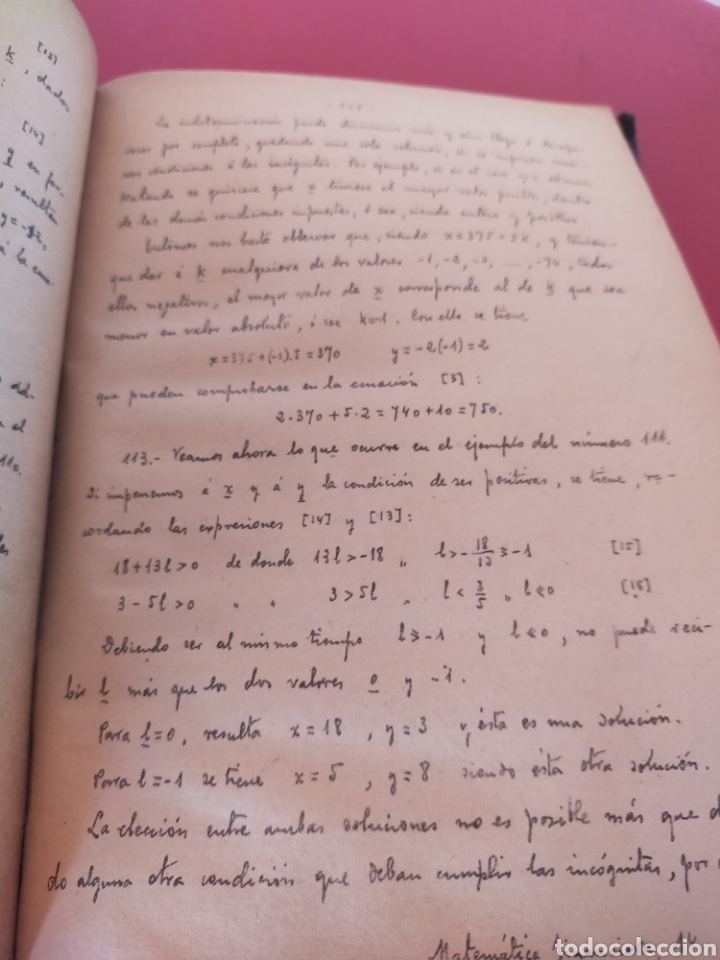 [13]
k, dados
[14]
y en fun-
resultan
y=-92,
á la cua-
el
110.
La indeterminación puede disminuir más, y aun llega á desapa-
recer por completo, quedando una sola solución, si se imponen nue-
vas condiciones á las incógnitas. Por ejemplo, si en el caso que estamos
tratando se quisiese que x tuviese el mayor valor posible, dentro
de las demás condiciones impuestas, ó sea, siendo entero y positivo.
Entonces nos basta observar que, siendo x=375+5k, y tenien-
que dar á k cualquiera de los valores -1, -2, -3, ...., -74, todos
ellos negativos, el mayor valor de x corresponde al de k que sea
menor en valor absoluto, ó sea k=-1. Con ello se tiene
x=375+(-1).5=370 y=-2(-1)=2
que pueden comprobarse en la ecuación [3]:
2·370+5·2=740+10=750.
113.- Veamos ahora lo que ocurre en el ejemplo del número 111.
Si imponemos á x y á y la condición de ser positivas, se tiene, re-
cordando las expresiones [14] y [13]:
18+13l>0 de donde 13l>-18 „ l>-18/13≥-1 [15]
3-5l>0 „ „ 3>5l „ l<3/5 „ l≤0 [16]
Debiendo ser al mismo tiempo l≥-1 y l≤0, no puede reci-
bir l más que los dos valores 0 y -1.
Para l=0, resulta x=18, y=3 y ésta es una solución.
Para l=-1 se tiene x=5, y=8 siendo ésta otra solución.
La elección entre ambas soluciones no es posible más que d
do alguna otra condición que deban cumplir las incógnitas, por
Matemática 14
todocoleccion.net